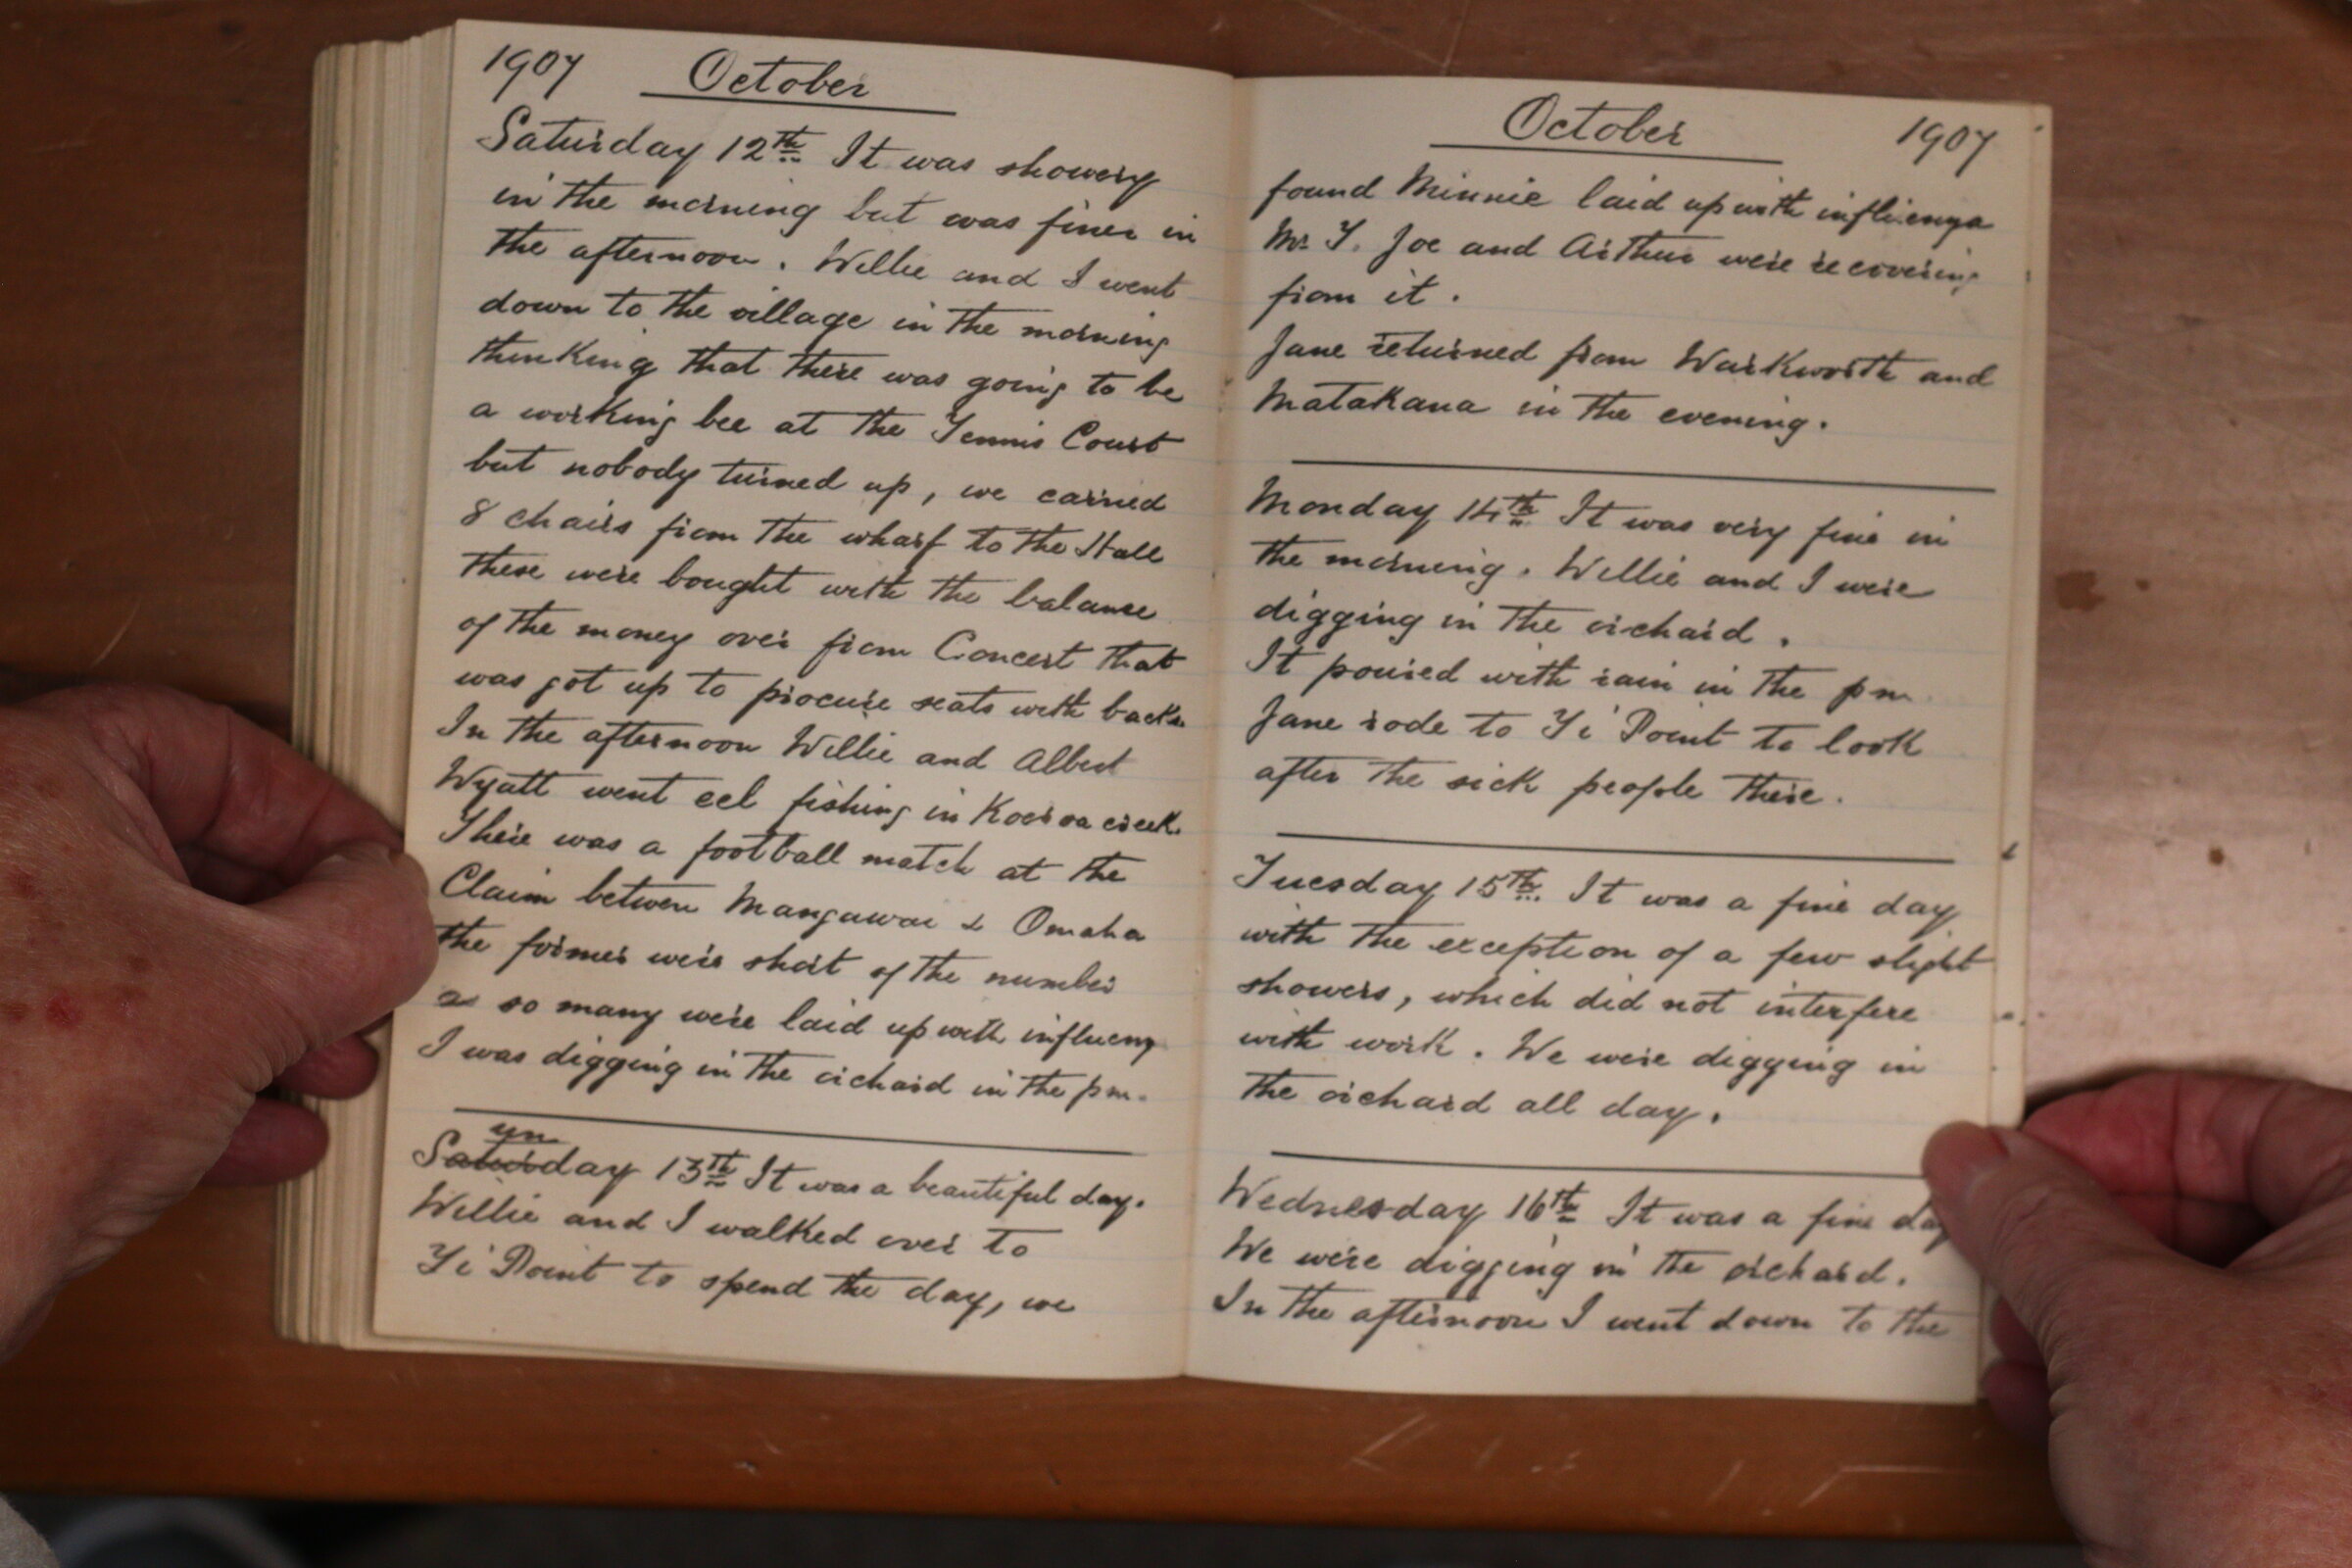 1907 October
Saturday 12th It was showery
in the morning but was finer in
the afternoon. Willie and I went
down to the village in the morning
thinking that there was going to be
a working bee at the Tennis Court
but nobody turned up, we carried
8 chairs from the wharf to the Hall
these were bought with the balance
of the money over from Concert that
was got up to procure seats with backs
In the afternoon Willie and Albert
Wyatt went eel fishing in creek.
There was a football match at the
Claim between Mangawai & Omaha
the former were short of the number
as so many were laid up with influenz
I was digging in the orchard in the pm.
Saturday un 13th It was a beautiful day.
Willie and I walked over to
Ti Point to spend the day, we
October 1907
found Minnie laid up with influenza
Mr T. Joe and Arthur were recovering
from it.
Jane returned from Warkworth and
Matakana in the evening.
Monday 14th It was very fine in
the morning. Willie and I were
digging in the orchard.
It poured with rain in the pm
Jane rode to Ti Point to look
after the sick people there.
Tuesday 15th It was a fine day
with the exception of a few slight
showers, which did not interfere
with work. We were digging in
the orchard all day.
Wednesday 16th It was a fine day
We were digging in the orchard.
In the afternoon I went down to the